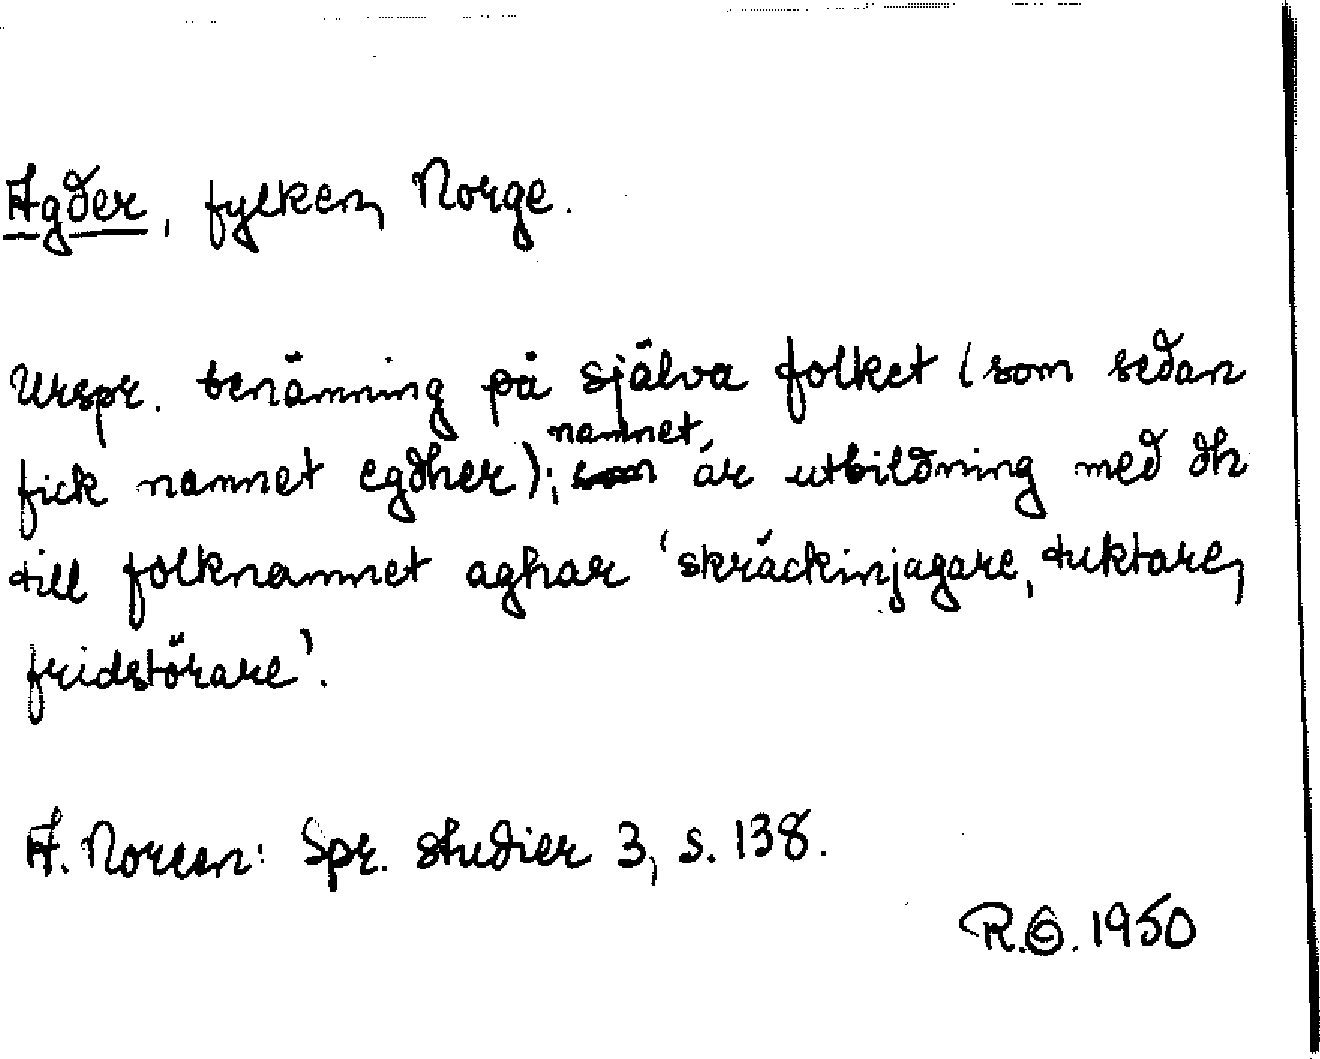 Agder, fylken, Norge.
Urspr. benämning på själva folket (som sedan
fick namnet egdher); namnet är utbildning med dh
till folknamnet aghar 'skräckinjagare, tuktare,
fridstörare'.
A. Noreen: Spr. studier 3, s. 138.
R.G. 1950